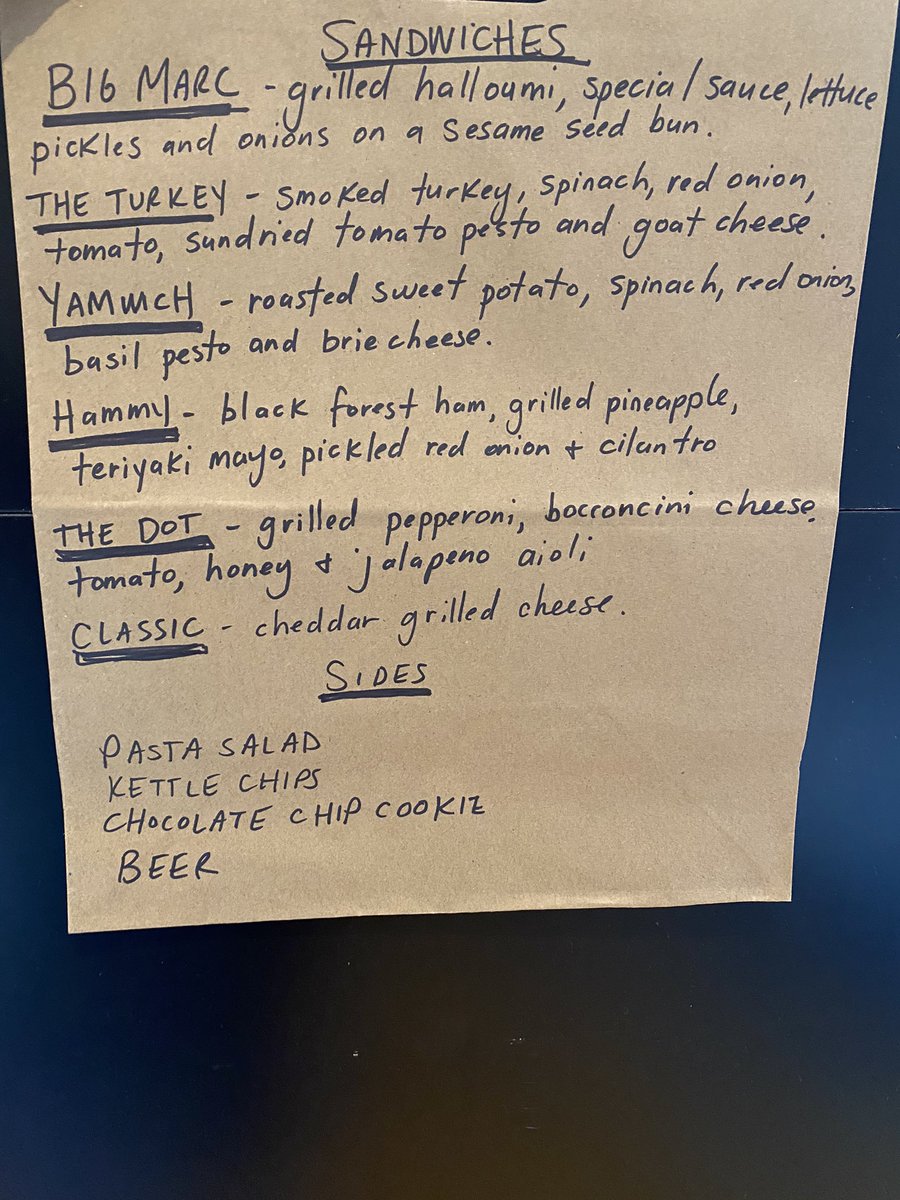 SANDWICHES
BIG MARC - grilled halloumi, special sauce, lettuce
pickles and onions on a sesame seed bun.
THE TURKEY - smoked turkey, spinach, red onion,
tomato, sundried tomato pesto and goat cheese.
YAMWICH - roasted sweet potato, spinach, red onion,
basil pesto and brie cheese.
Hammy - black forest ham, grilled pineapple,
teriyaki mayo, pickled red onion + cilantro
THE DOT - grilled pepperoni, bocconcini cheese,
tomato, honey + jalapeno aioli
CLASSIC - cheddar grilled cheese.
SIDES
PASTA SALAD
KETTLE CHIPS
CHOCOLATE CHIP COOKIE
BEER